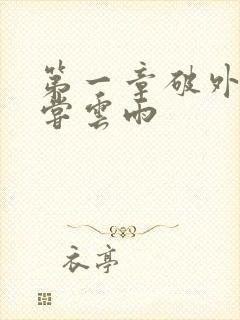 第一章破外
尝雲雨
衣亭